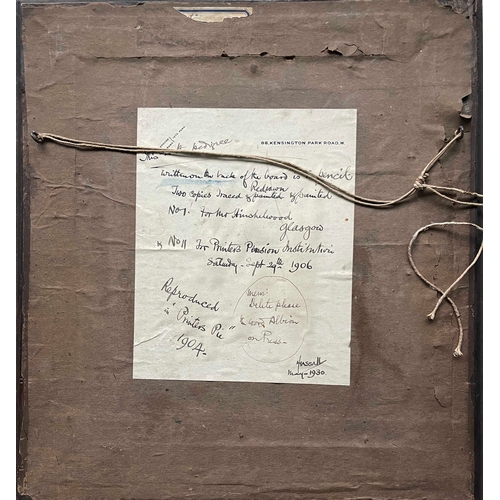 88, KENSINGTON PARK ROAD, W.
This is the pedigree
written on the back of the board is in pencil
Redrawn
Two copies traced & painted & painted
No 1. For Mr Hinshelwood
Glasgow
No 11 For Printers Pension Institution
Saturday - Sept 29th 1906
Reproduced
in "Printers Pie"
1904.
Memo:
Delete please
word Albion
on Press.
May - 1930.